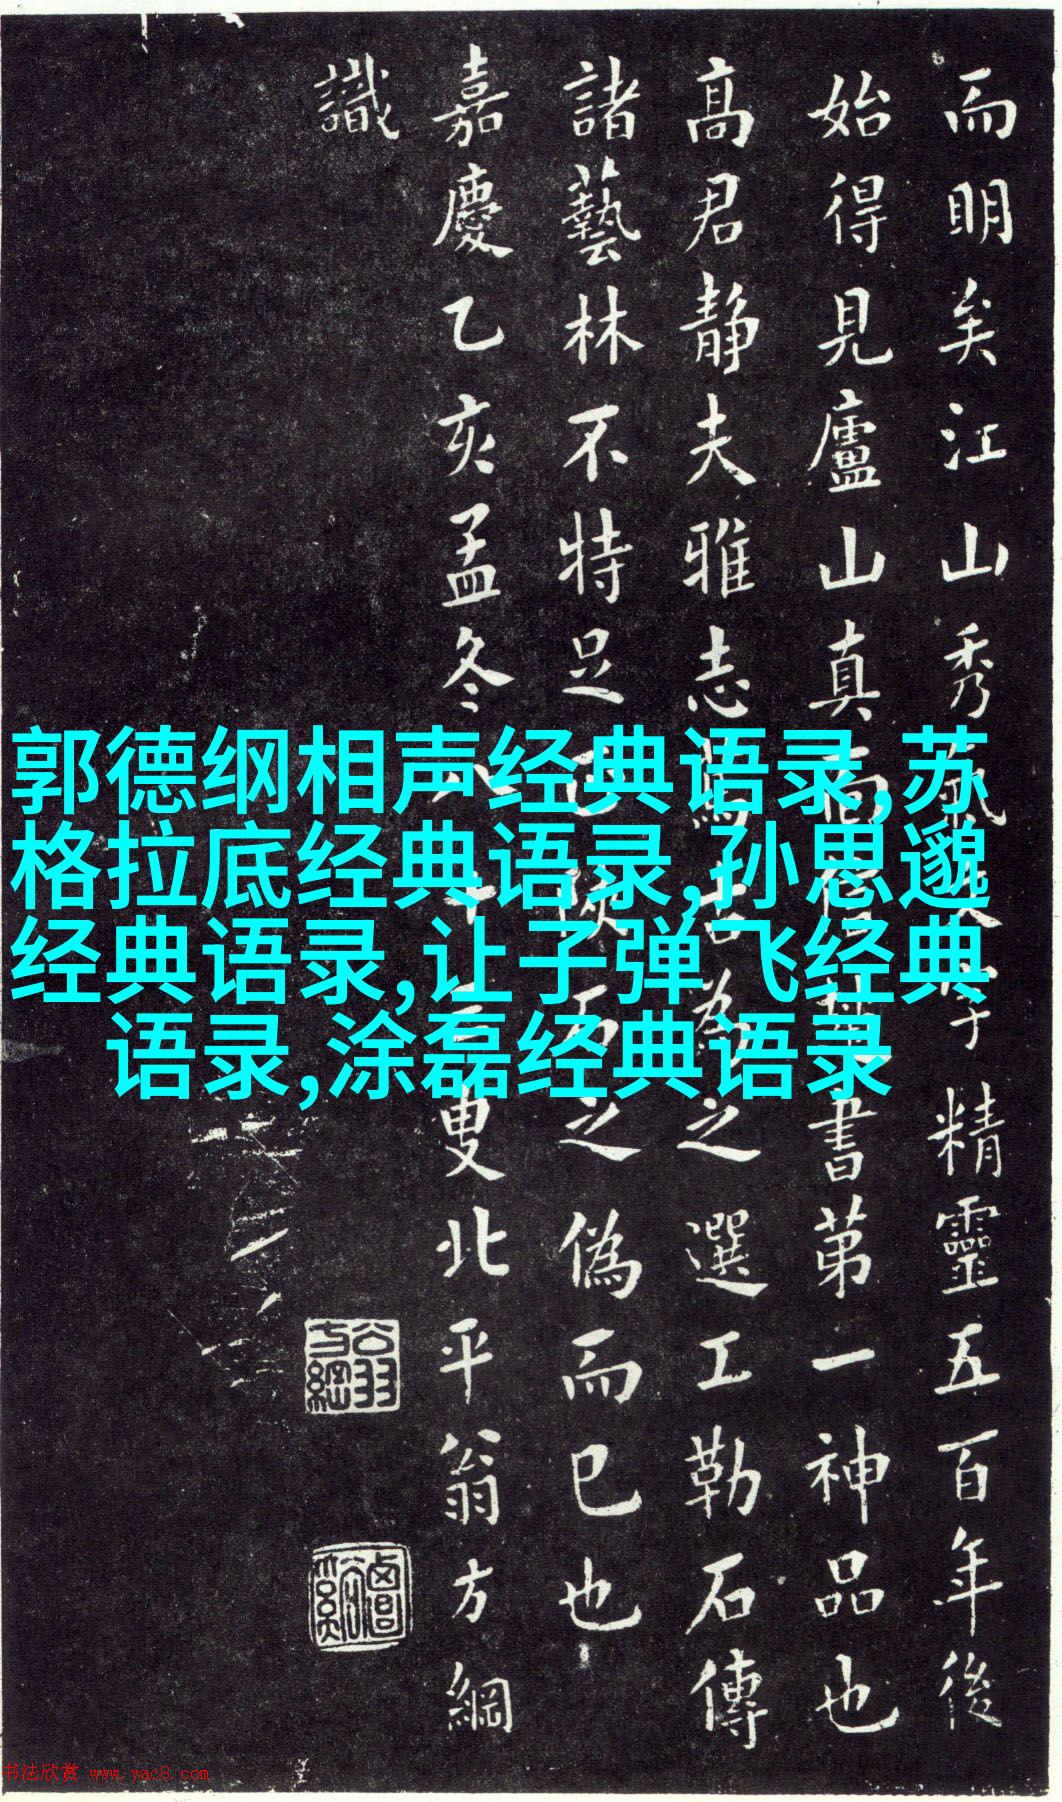 而明矣江山秀氣精靈五百年後
始得見廬山真面書第一神品也
高君静夫雅志為之選工勒石傳
諸藝林不特足之偽而已也
嘉慶乙亥孟冬叟北平翁方綱
識
翁方綱
覃谿
郭德纲相声经典语录,苏
格拉底经典语录,孙思邈
经典语录,让子弹飞经典
语录,涂磊经典语录
书法欣赏 www.yac8.com